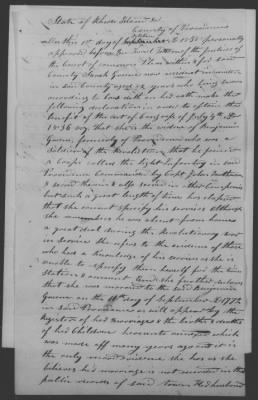 State of Rhode Island &c
County of Providence
On this 10th day of September 1838 personally
appeared before the Court of the justices of
the Court of common Pleas within & for said
County Sarah Greene now resident in
in said County aged years who being sworn
according to law doth on her oath make the
following declaration in order to obtain the
benefit of the act of Congress of July 4th AD
1836 say that she is the widow of Benjamin
Greene formerly of Providence who was a
Soldier of the Revolution that he joined
a Corps called the light Infantry in said
Providence Commanded by Capt John
& served therein & also served in other Companies
but such a great length of time has elapsed
that she cannot specify his services although
she remembers he was absent from home
a great deal during the Revolutionary war
in service she refers to the evidence of those
who had a knowledge of his services as she is
unable to specify them herself for the time
Stations & and she further declares
that she was married to the said Benjamin
Greene on the day of September 1772
in said Providence as will appear by the
Register of his marriage & the births & deaths
of his Children hereunto annexed which
was made off many years ago it is
the only record evidence she has as she
believes her marriage is not recorded in the
public records of said town Her husband